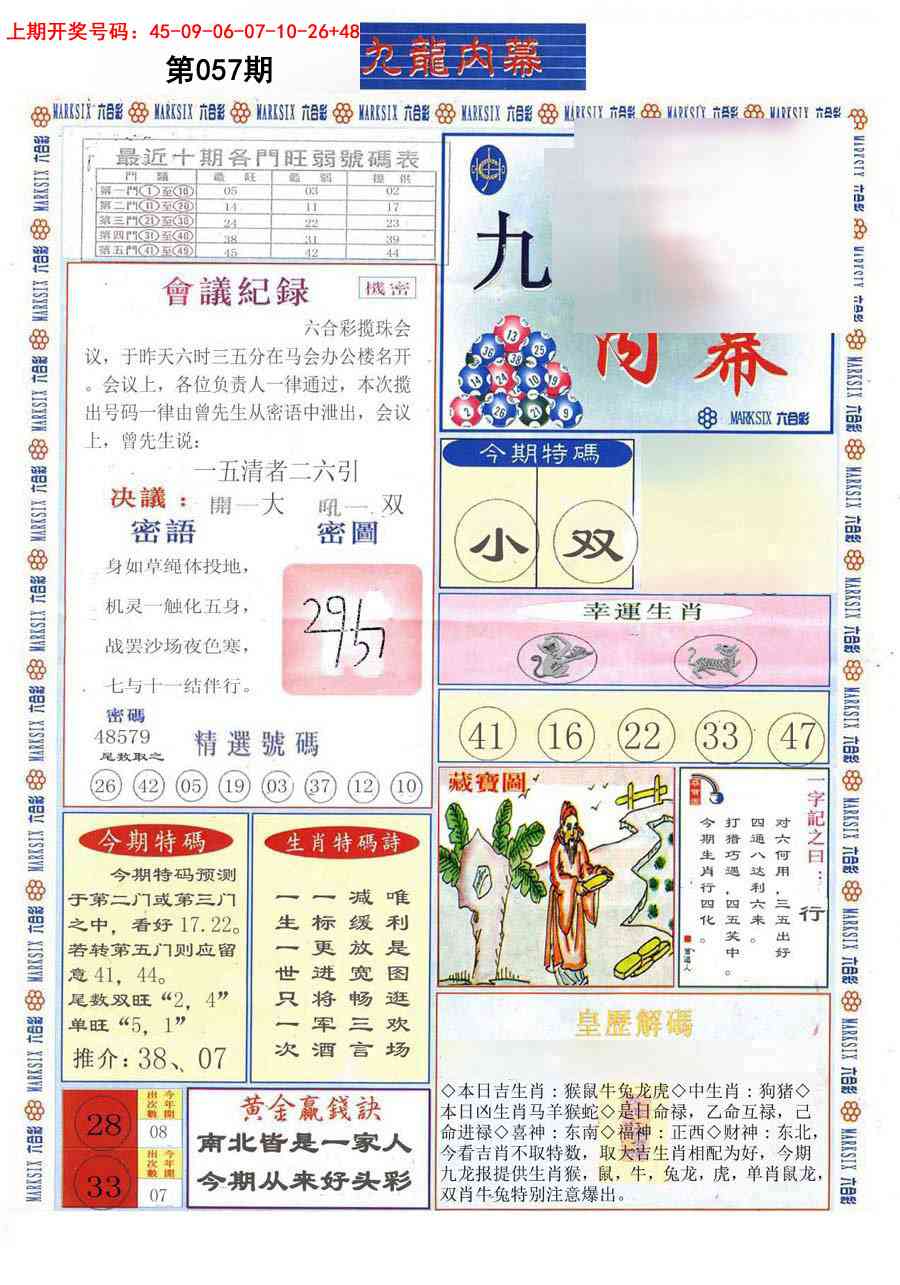 上期开奖号码：45-09-06-07-10-26+48
第057期
九龍内幕
最近十期各門旺弱號碼表
門 類 最 旺 最 弱 提 供
第一門①至⑩ 05 03 02
第二門⑪至⑳ 14 11 17
第三門㉑至㉚ 24 22 23
第四門㉛至㊵ 38 31 39
第五門㊶至㊾ 45 42 44
會議紀録
機密
六合彩揽珠会
议，于昨天六时三五分在马会办公楼名开
。会议上，各位负责人一律通过，本次揽
出号码一律由曾先生从密语中泄出，会议
上，曾先生说：
一五清者二六引
决議：開一大 吼一双
密語
密圖
身如草绳体投地，
机灵一触化五身，
战罢沙场夜色寒，
七与十一结伴行。
295
密碼
48579
尾数取之
精選號碼
26 42 05 19 03 37 12 10
今期特碼
今期特码预测
于第二门或第三门
之中，看好17.22。
若转第五门则应留
意41，44。
尾数双旺“2，4”
单旺“5，1”
推介：38、07
生肖特碼詩
唯利是图逛欢场
减缓放宽畅三言
一标更进将军酒
一生一世只一次
28
今年開出次數
08
33
今年開出次數
07
黄金贏錢訣
南北皆是一家人
今期从来好头彩
九
内幕
13
36 38 25
14 24 10 19
2 26 21 9
MARKSIX 六合彩
今期特碼
小 双
幸運生肖
41 16 22 33 47
藏寶圖
一字記之曰：行
对六何用，三五出好
四通八达利六来。
打猎巧遇，四五笑中。
今期生肖行四化。
皇歷解碼
◇本日吉生肖：猴鼠牛兔龙虎◇中生肖：狗猪◇
本日凶生肖马羊猴蛇◇是日命禄，乙命互禄，己
命进禄◇喜神：东南◇福神：正西◇财神：东北，
今看吉肖不取特数，取大吉生肖相配为好，今期
九龙报提供生肖猴，鼠，牛，兔龙，虎，单肖鼠龙，
双肖牛兔特别注意爆出。